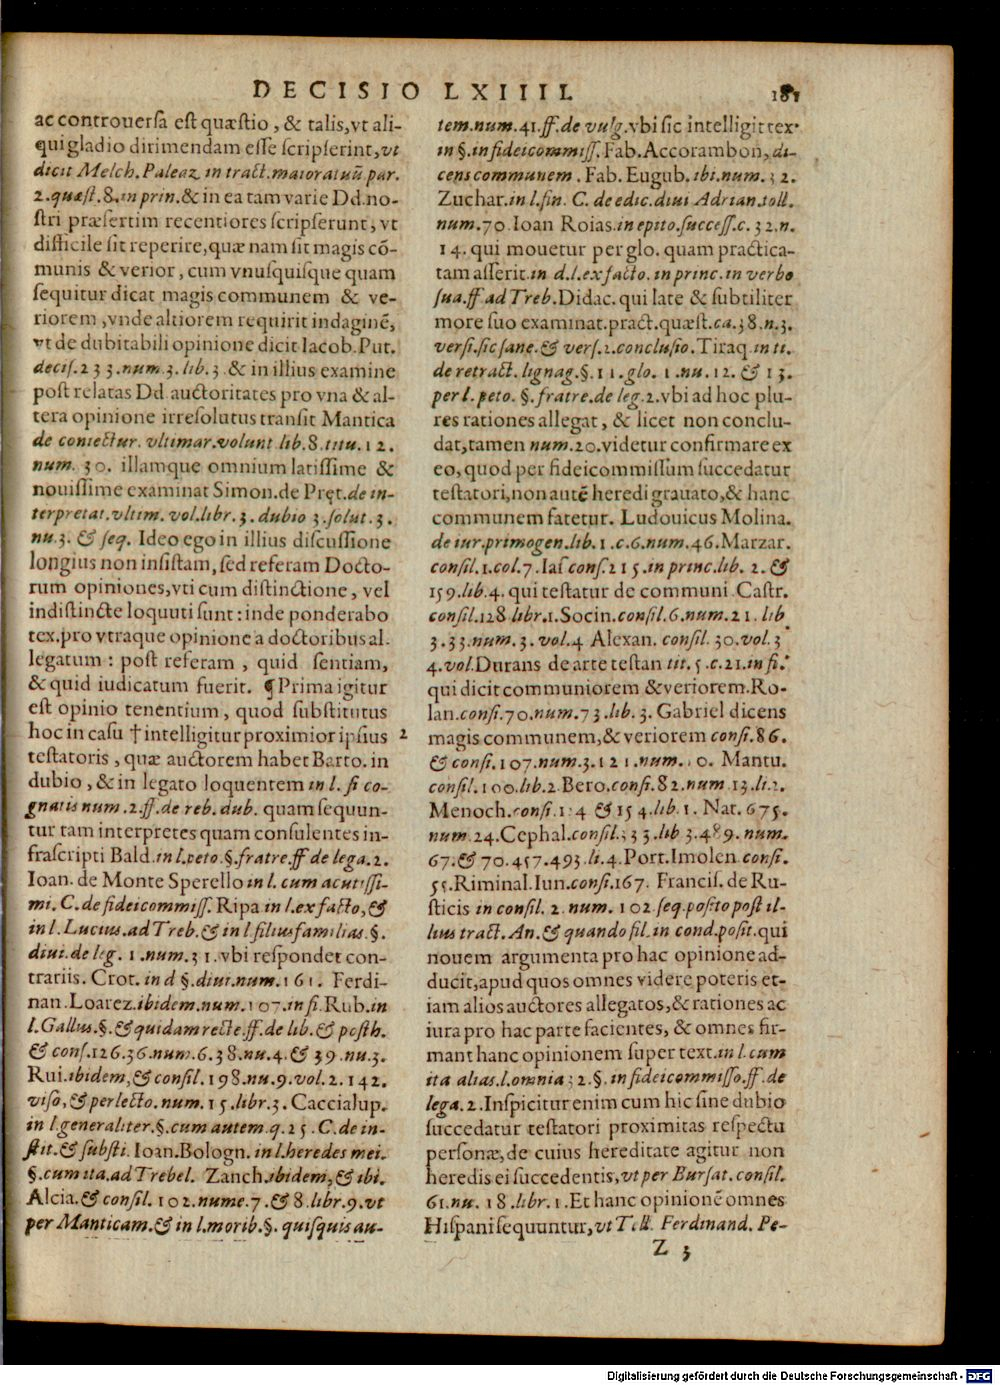 DECISIO LXIIII.
ac controuersa est quæstio, & talis, vt ali-
qui gladio dirimendam esse scripserint, vt
dicit Melch. Paleaz. in tract. maioratuũ par.
2. quæst. 8. in prin. & in ea tam varie Dd. no-
stri præsertim recentiores scripserunt, vt
difficile sit reperire, quæ nam sit magis cõ-
munis & verior, cum vnusquisque quam
sequitur dicat magis communem & ve-
riorem, vnde altiorem requirit indaginẽ,
vt de dubitabili opinione dicit Iacob. Put.
decis. 233. num. 3. lib. 3. & in illius examine
post relatas Dd. auctoritates pro vna & al-
tera opinione irresolutus transit Mantica
de coniectur. vltimar. volunt lib. 8. titu. 12.
num. 30. illamque omnium latissime &
nouissime examinat Simon. de Pręt. de in-
terpretat. vltim. vol. libr. 3. dubio 3. solut. 3.
nu. 3. & seq. Ideo ego in illius discussione
longius non insistam, sed referam Docto-
rum opiniones, vti cum distinctione, vel
indistincte loquuti sunt: inde ponderabo
tex. pro vtraque opinione a doctoribus al.
legatum: post referam, quid sentiam,
& quid iudicatum fuerit. ¶ Prima igitur
est opinio tenentium, quod substitutus
hoc in casu † intelligitur proximior ipsius 2
testatoris, quæ auctorem habet Barto. in
dubio, & in legato loquentem in l. si co-
gnatis num. 2. ff. de reb. dub. quam sequun-
tur tam interpretes quam consulentes in-
frascripti Bald. in l. peto. §. fratre. ff. de lega. 2.
Ioan. de Monte Sperello in l. cum acutissi-
mi. C. de fideicommiss. Ripa in l. ex facto, &
in l. Lucius. ad Treb. & in l. filiusfamilias. §.
diui. de leg. 1. num. 31. vbi respondet con-
trariis. Crot. in d §. diui. num. 161. Ferdi-
nan. Loarez. ibidem. num. 107. in fi. Rub. in
l. Gallus. §. & quidam recte. ff. de lib. & posth.
& cons. 126. 36. num. 6. 38. nu. 4. & 39. nu. 3.
Rui. ibidem, & consil. 198. nu. 9. vol. 2. 142.
viso, & perlecto. num. 15. libr. 3. Caccialup.
in l. generaliter. §. cum autem. q. 25. C. de in-
stit. & substi. Ioan. Bologn. in l. heredes mei.
§. cum ita. ad Trebel. Zanch. ibidem, & ibi.
Alcia. & consil. 102. nume. 7. & 8. libr. 9. vt
per Manticam. & in l. morib. §. quisquis au-
tem. num. 41. ff. de vulg. vbi sic intelligit tex.
in §. in fideicommiss. Fab. Accorambon, di-
cens communem. Fab. Eugub. ibi. num. 32.
Zuchar. in l. fin. C. de edic. diui Adrian. toll.
num. 70. Ioan Roias. in epito. success. c. 32. n.
14. qui mouetur per glo. quam practica-
tam asserit. in d. l. ex facto. in princ. in verbo
sua. ff ad Treb. Didac. qui late & subtiliter
more suo examinat. pract. quæst. ca. 38. n. 3.
versi. sic sane. & vers. 2. conclusio. Tiraq. in ti.
de retract. lignag. §. 11. glo. 1. nu. 12. & 13.
per l. peto. §. fratre. de leg. 2. vbi ad hoc plu-
res rationes allegat, & licet non conclu-
dat, tamen num. 20. videtur confirmare ex
eo, quod per fideicommissum succedatur
testatori, non autẽ heredi grauato, & hanc
communem fatetur. Ludouicus Molina.
de iur. primogen. lib. 1. c. 6. num. 46. Marzar.
consil. 1. col. 7. Ias cons. 215. in princ. lib. 2. &
159. lib. 4. qui testatur de communi Castr.
consil. 128 libr. 1. Socin. consil. 6. num. 21. lib
3. 33. num. 3. vol. 4 Alexan. consil. 30. vol. 3
4. vol. Durans de arte testan tit. 5. c. 21. in fi.
qui dicit communiorem & veriorem. Ro-
lan. consi. 70. num. 73. lib. 3. Gabriel dicens
magis communem, & veriorem consi. 86.
& consi. 107. num. 3. 121. num. 10. Mantu.
consil. 100. lib. 2. Bero. consi. 82. num. 13. li. 2.
Menoch. consi. 124 & 154. lib. 1. Nat. 675.
num. 24. Cephal. consil. 333. lib. 3. 489. num.
67. & 70. 457. 493. li. 4. Port. Imolen. consi.
55. Riminal. Iun. consi. 167. Francis. de Ru-
sticis in consil. 2. num. 102. seq. posito post il-
lius tract. An. & quando fil. in cond. posit. qui
nouem argumenta pro hac opinione ad-
ducit, apud quos omnes videre poteris et-
iam alios auctores allegatos, & rationes ac
iura pro hac parte facientes, & omnes fir-
mant hanc opinionem super text. in l. cum
ita alias. l. omnia 32. §. in fideicommisso. ff. de
lega. 2. Inspicitur enim cum hic sine dubio
succedatur testatori proximitas respectu
personæ, de cuius hereditate agitur non
heredis ei succedentis, vt per Bursat. consil.
61. nu. 18. libr. 1. Et hanc opinionẽ omnes
Hispani sequuntur, vt Tell. Ferdinand. Pe-
Z 3
Digitalisierung gefördert durch die Deutsche Forschungsgemeinschaft - DFG